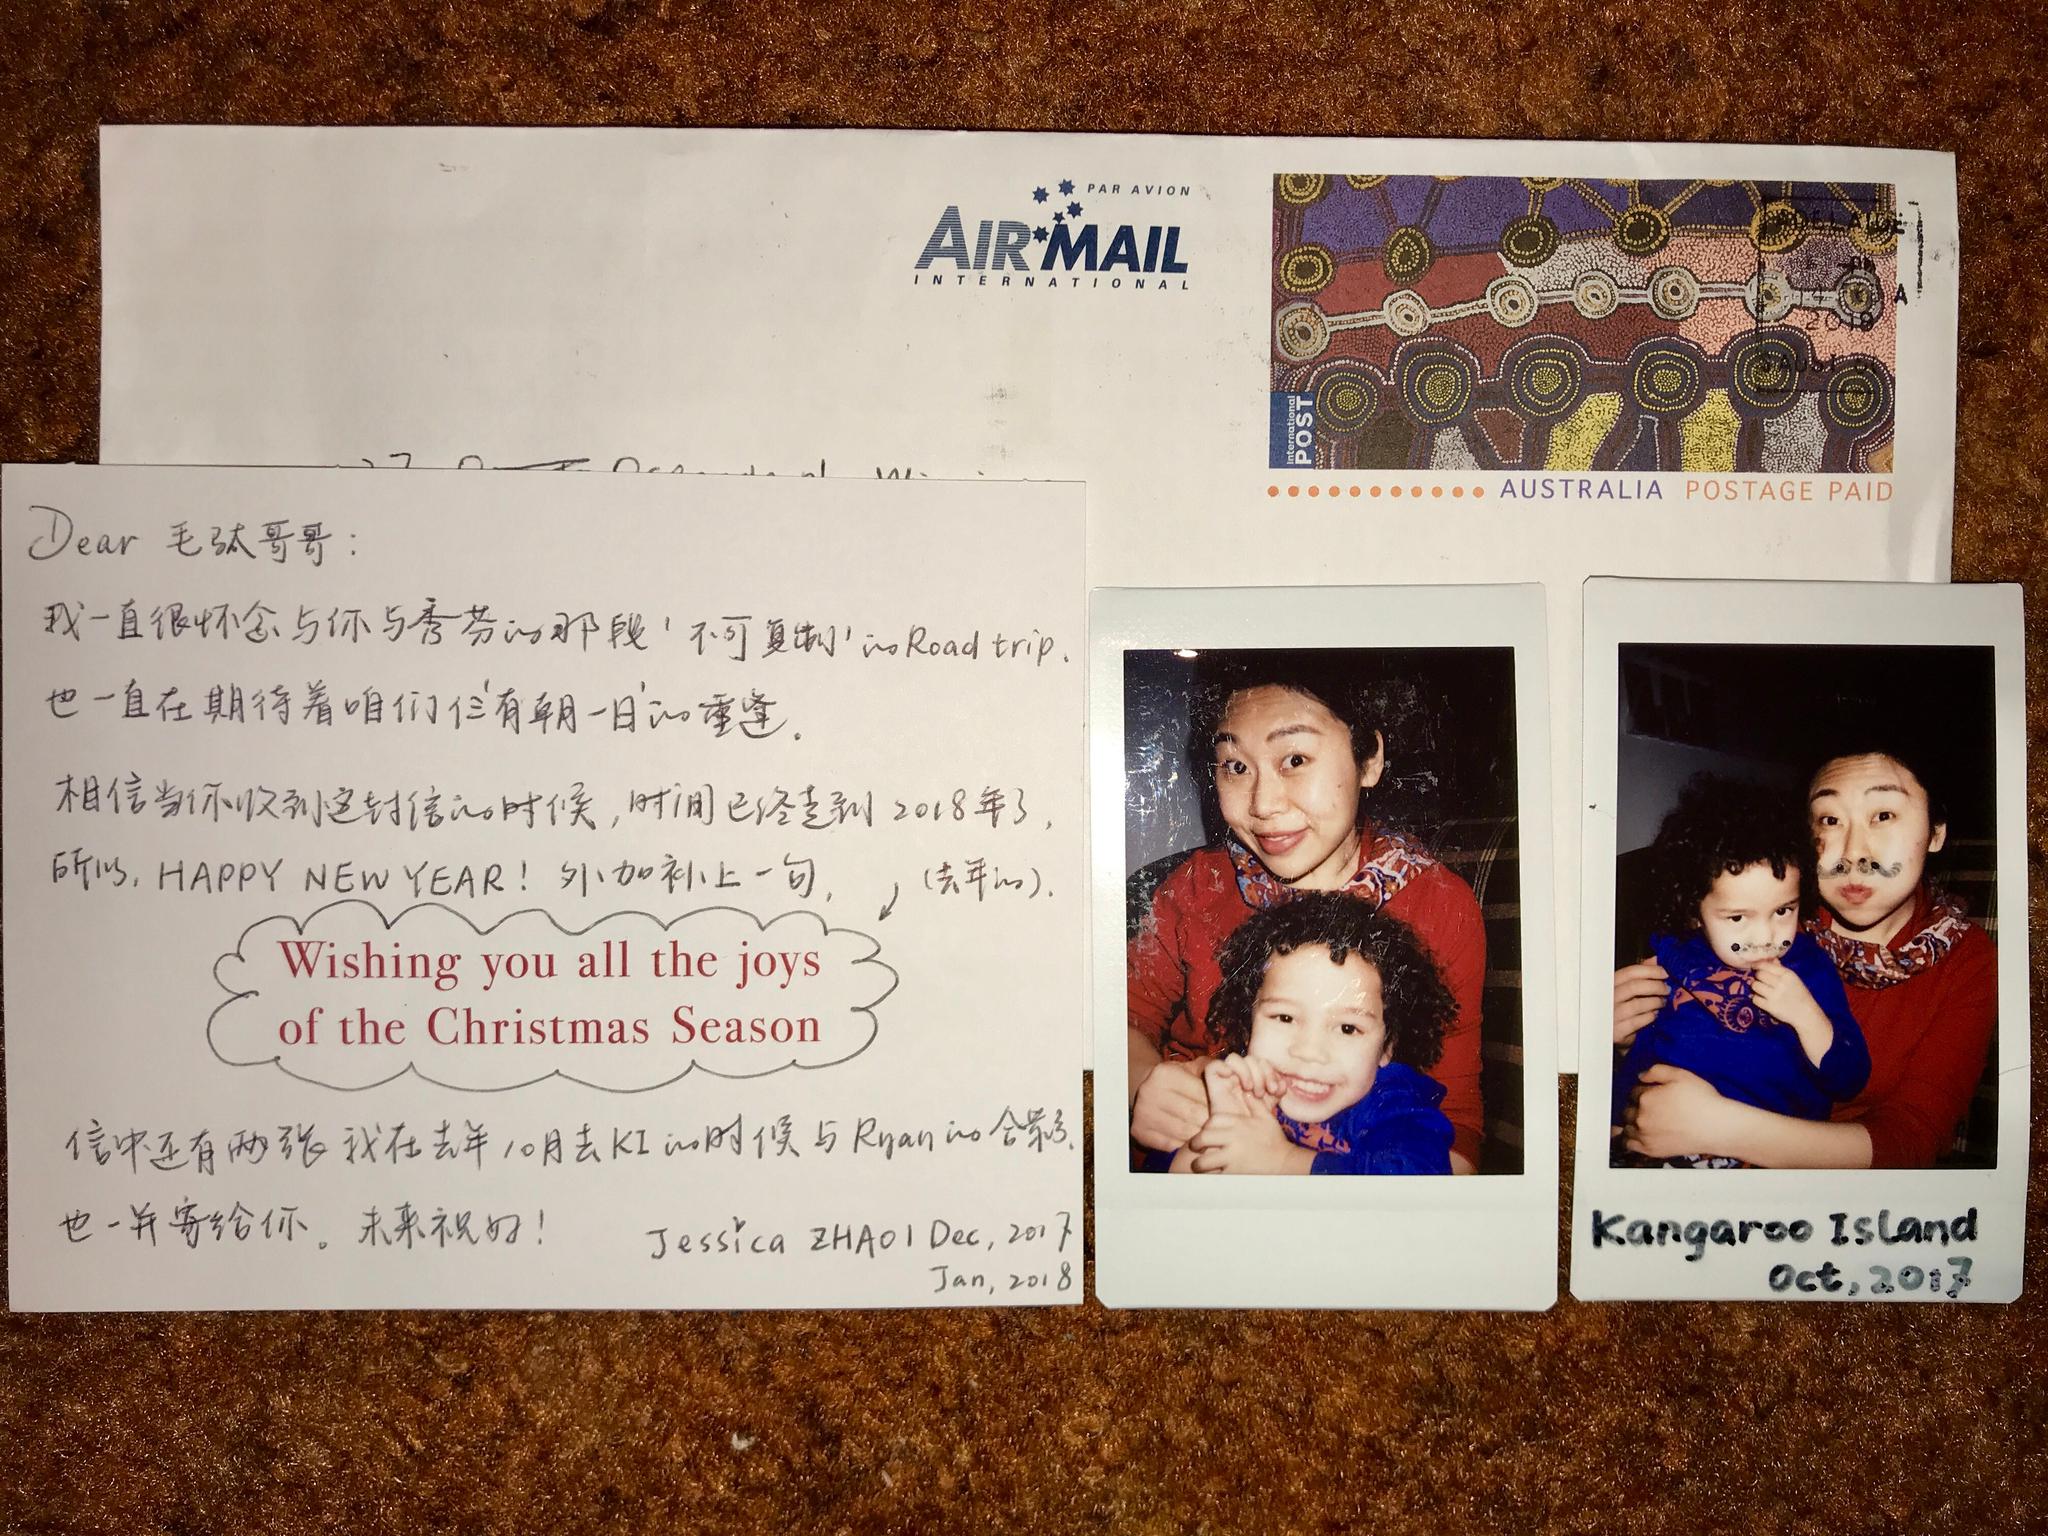 PAR AVION
AIR MAIL
INTERNATIONAL
ADELAIDE
2018
A
International
POST
AUSTRALIA POSTAGE PAID
Dear 毛 哥哥：
我一直很怀念与你与秀芬的那段'不可复制'的Road trip.
也一直在期待着咱们仨'有朝一日'的重逢.
相信当你收到这封信的时候,时间已经走到2018年了,
所以, HAPPY NEW YEAR! 外加补上一句, (去年的).
Wishing you all the joys
of the Christmas Season
信中还有两张我在去年10月去KI的时候与Ryan的合影,
也一并寄给你。未来祝好!
Jessica ZHAO 1 Dec, 2017
Jan, 2018
Kangaroo Island
Oct, 2017